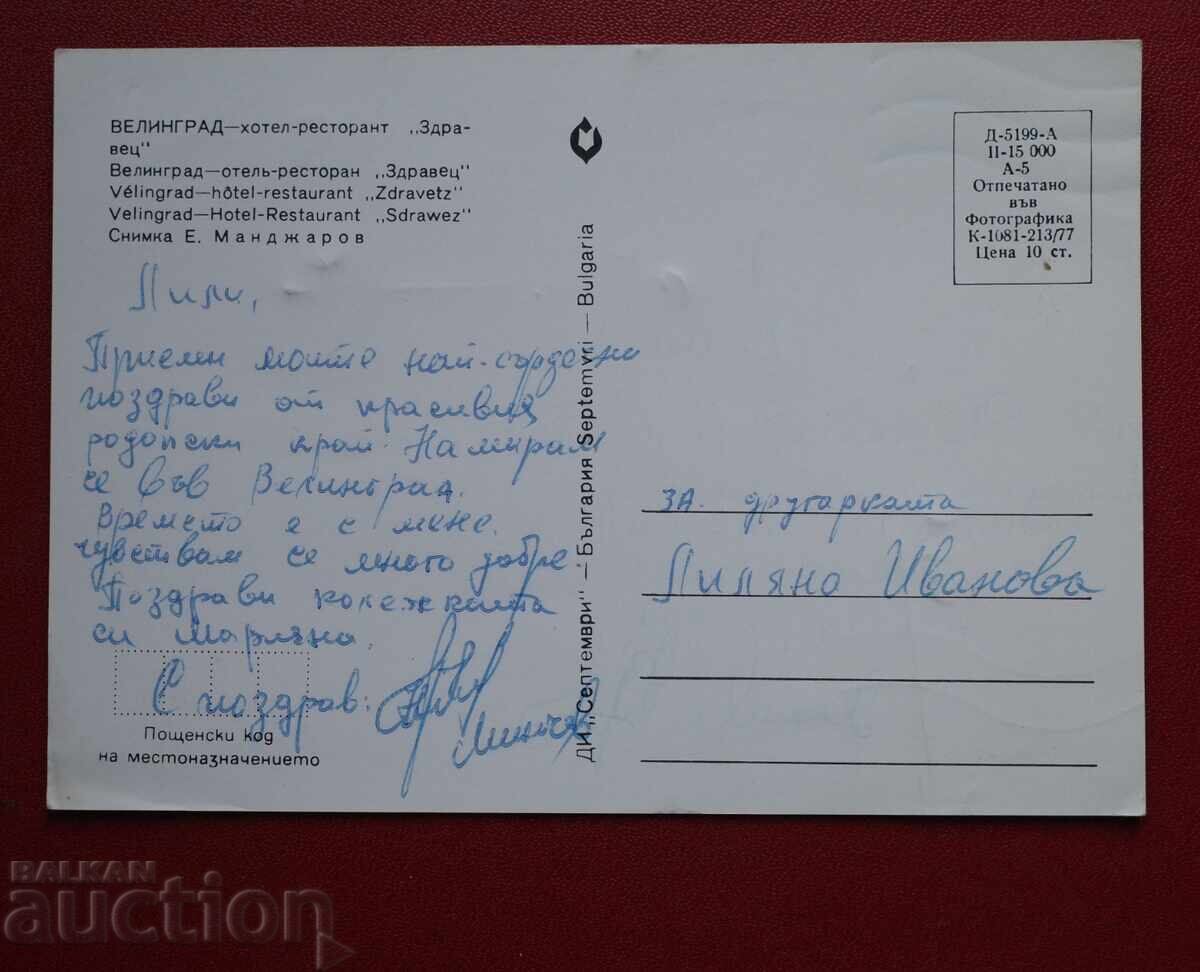 ВЕЛИНГРАД—хотел-ресторант „Здра-
вец"
Велинград—отель-ресторан „Здравец"
Vélingrad—hôtel-restaurant „Zdravetz"
Velingrad—Hotel-Restaurant „Sdrawez"
Снимка Е. Манджаров
Лили,
Приеми моите най-сърдечни
поздрави от красивия
родопски край. Намирам
се във Велинград.
Времето е с мене.
чувствам се много добре.
Поздрави колежката
си Марляна.
С поздрав:
Минчев
Пощенски код
на местоназначението
ДИ „Септември" — България Septemvri — Bulgaria
Д-5199-А
II-15 000
А-5
Отпечатано
във
Фотографика
К-1081-213/77
Цена 10 ст.
ЗА. другарката
Лиляна Иванова
BALKAN
auction